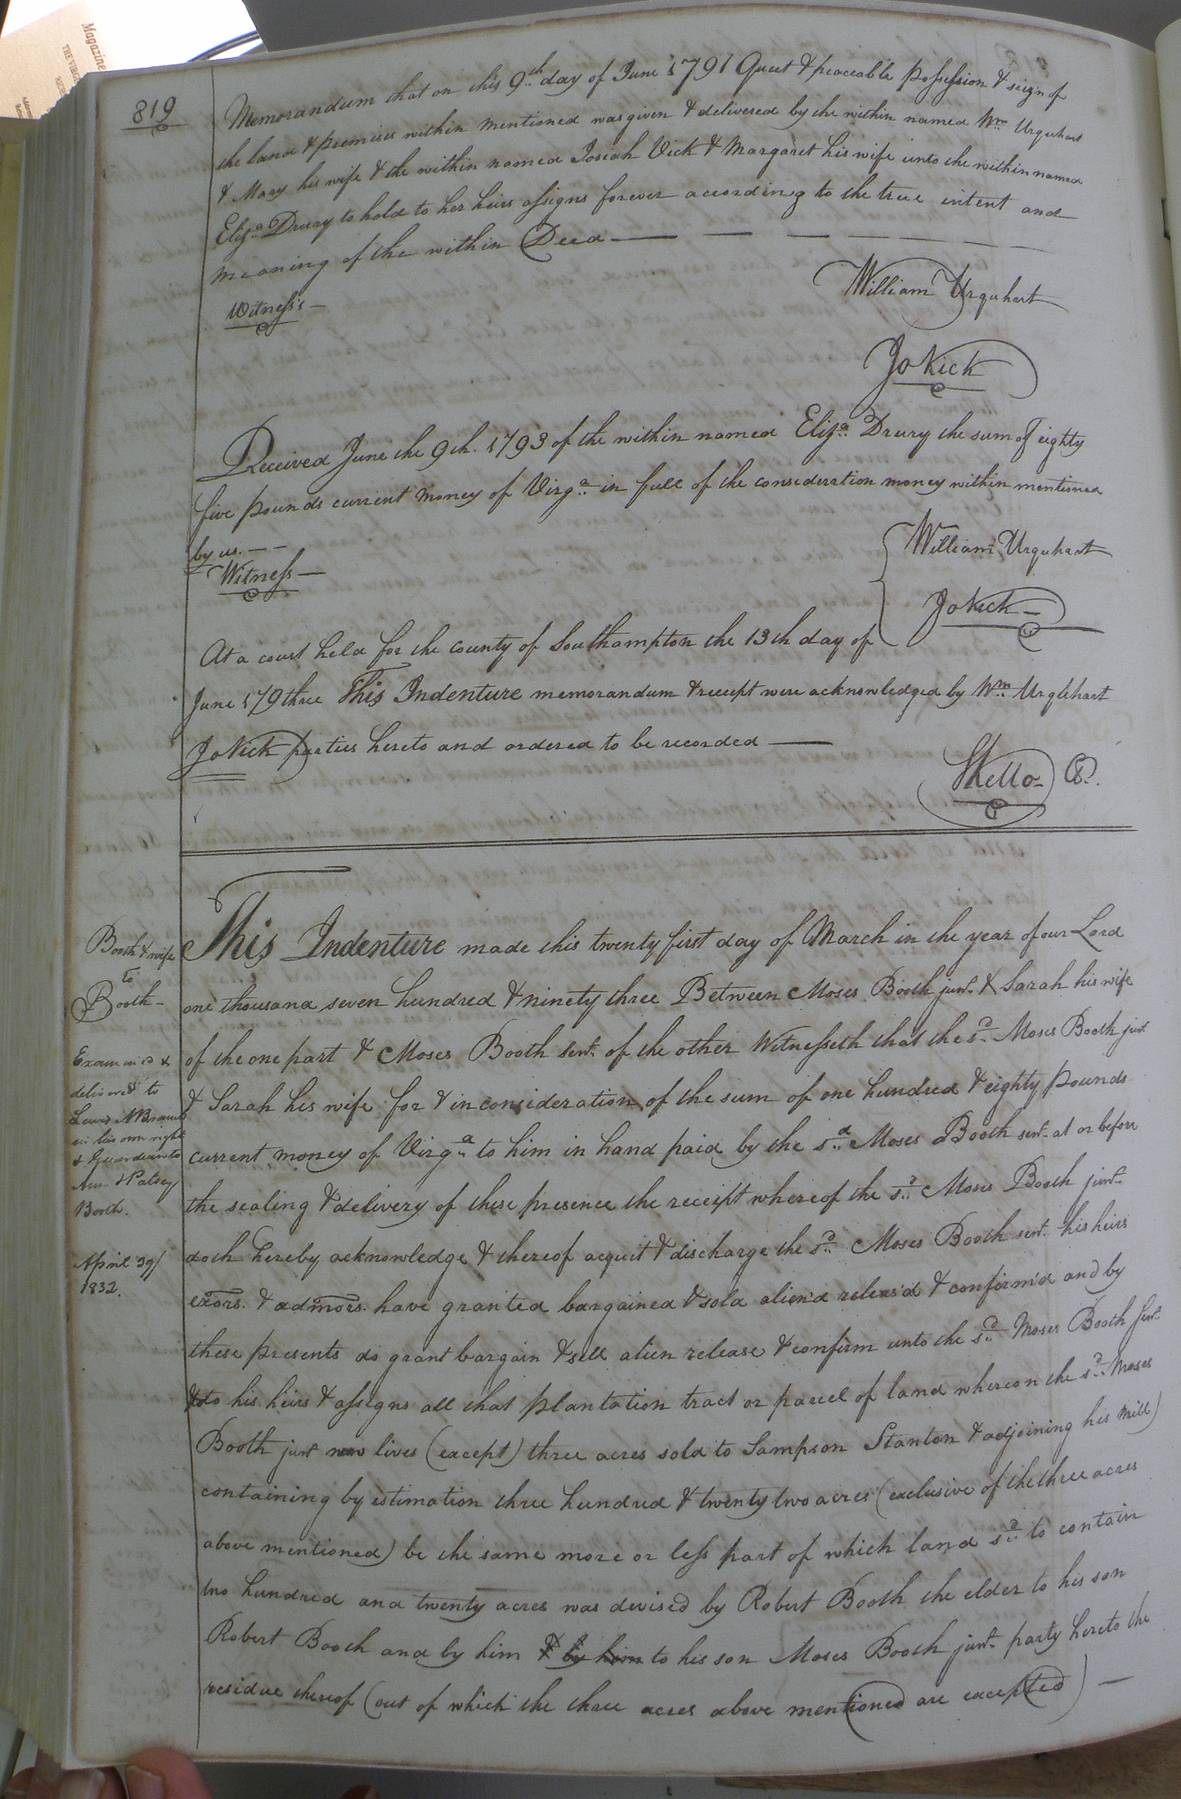 Magazine
819
Memorandum that on this 9th day of June 1791 Quet & peaceable possession & seign of
the land & premises within mentioned was given & delivered by the within named Wm Urquhart
& Mary his wife & the within named Josiah Vick & Margaret his wife unto the within named
Eliza Drury to hold to her heirs assigns forever according to the true intent and
meaning of the within Deed
Witness
William Urquhart
Jo Vick
Received June the 9th. 1793 of the within named Eliza Drury the sum of eighty
five pounds current money of Virga in full of the consideration money within mentioned
by us.
Witness
William Urquhart
Jo Vick
At a court held for the county of Southampton the 13th day of
June 179three This Indenture memorandum & receipt were acknowledged by Wm Urqhhart
Jo Vick parties hereto and ordered to be recorded
SKello C.
Booth & wife
To
Booth
Examined &
delivered to
in his own right
& Guardian to
Ann & Patsey
Booth.
April 39/
1832.
This Indenture made this twenty first day of March in the year of our Lord
one thousand seven hundred & ninety three Between Moses Booth junr & Sarah his wife
of the one part & Moses Booth senr. of the other Witnesseth that the sd Moses Booth junr
& Sarah his wife for & in consideration of the sum of one hundred & eighty pounds
current money of Virga to him in hand paid by the sd Moses Booth senr at or before
the sealing & delivery of these presence the receipt whereof the sd Moses Booth junr
doth hereby acknowledge & thereof acquit & discharge the sd Moses Booth senr his heirs
exors. & admors. have granted bargained & sold alien'd releas'd & confirm'd and by
these presents do grant bargain & sell alien release & confirm unto the sd Moses Booth senr
& to his heirs & assigns all that plantation tract or parcel of land whereon the sd Moses
Booth junr now lives (except) three acres sold to Sampson Stanton & adjoining his mill)
containing by estimation three hundred & twenty two acres (exclusive of the three acres
above mentioned) be the same more or less part of which land sd to contain
two hundred and twenty acres was devised by Robert Booth the elder to his son
Robert Booth and by him & by him to his son Moses Booth junr party hereto the
residue thereof (out of which the three acres above mentioned are excepted)